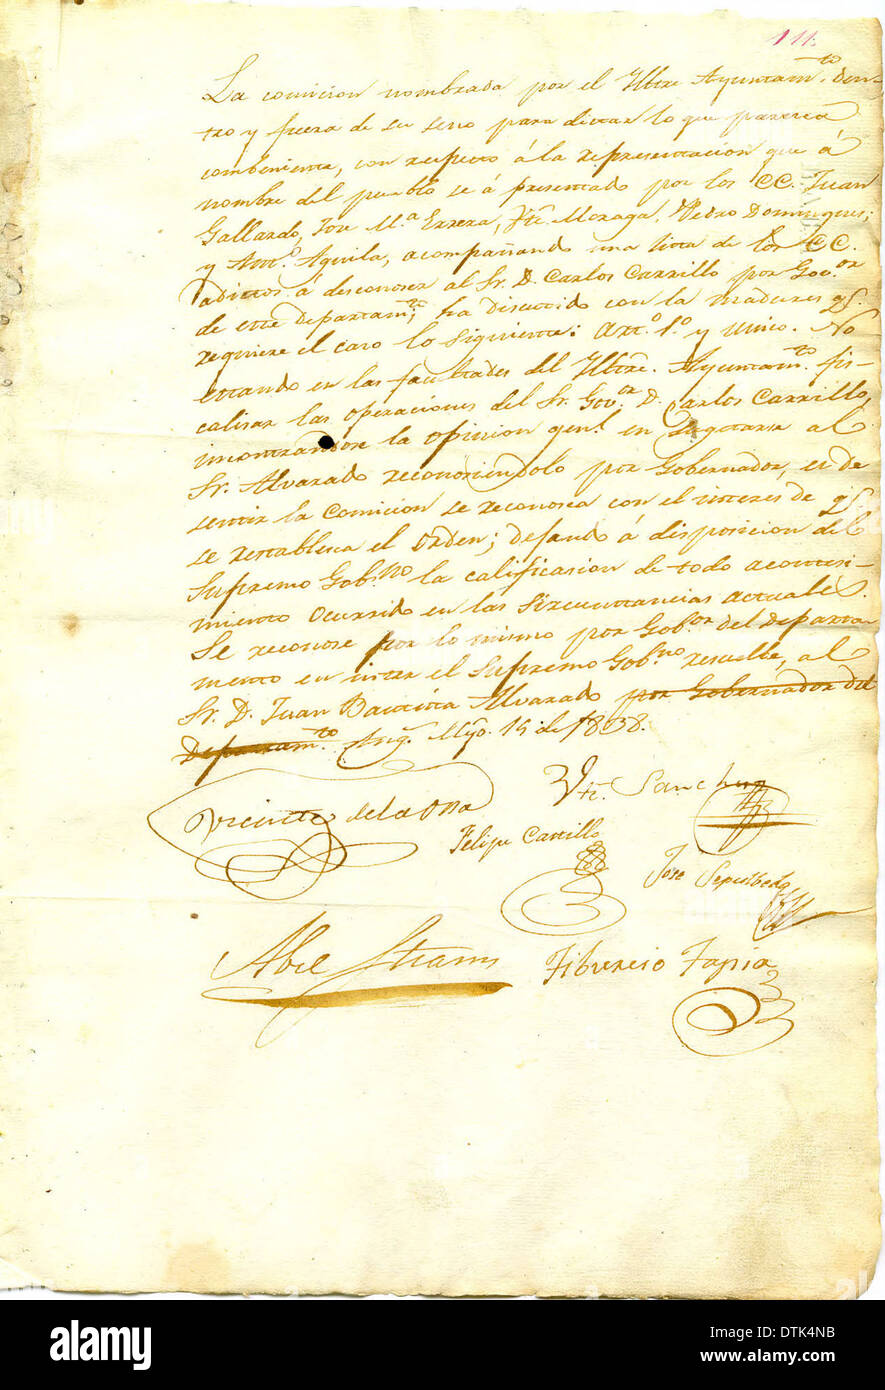 111.
La comicion nombrada por el Yltre Ayuntam.to den-
tro y fuera de su seno para dictar lo que paresca
combeniente, con respecto á la representacion que á
nombre del pueblo se á presentado por los CC. Juan
Gallardo, Jose M.a Errera, Vte. Moraga, Pedro Domingues;
y Ant.o Aguila, acompañando una lista de los CC.
adictos á desconoser al Sr. D. Carlos Carrillo por Gov.or
de este departam.to, ha discutido con la madures qe.
requiere el caso lo siguiente: Art.o 1.o y unico. No
estando en las facultades del Yltre. Ayuntam.to fis-
calisar las operaciones del Sr. Gov.or D. Carlos Carrillo,
incontrandose la opinion genl. en respetar al
Sr. Alvarado reconosiendolo por Gobernador, es de
sentir la Comicion se reconosca con el interes de qe.
se restablesca el orden; dejando á disposicion del
Supremo Gobno. la calificasion de todo acontesi-
miento ocurrido en las sircunstancias actuales.
Se reconose por lo mismo por Gob.or del departa
mento en inter el Supremo Gob.no resuelbe, al
Sr. D. Juan Bautista Alvarado por Gobernador del
Departam.to. Ang.s Myo. 15 de 1838.
Vicente de la Osa
Vte. Sanchez
Felipe Castillo
Jose Sepulbeda
Abel Stearns
Tibursio Tapia
alamy
DTK4NB
www.alamy.com